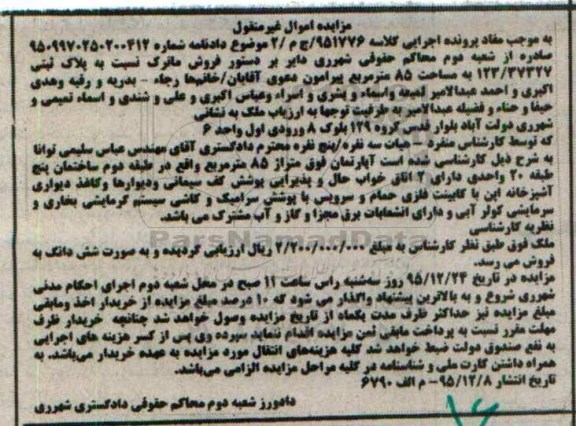 مزایده اموال غیرمنقول
به موجب مفاد پرونده اجرایی کلاسه ۹۵۱۷۷۶/ج م /۲ موضوع دادنامه شماره ۹۵۰۹۹۷۰۲۵۰۲۰۰۴۱۲
صادره از شعبه دوم محاکم حقوقی شهرری دایر بر دستور فروش ماترک نسبت به پلاک ثبتی
۱۲۳/۳۷۳۲۷ به مساحت ۸۵ مترمربع پیرامون دعوی آقایان/خانم‌ها رجاء - بدریه و رقیه وهدی
اکبری و احمد عبدالامیر لمیعه واسماء و بشری و اسراء وعباس اکبری و علی و شندی و اسماء نعیمی و
حیفا و حناء و فضیله عبدالامیر به طرفیت توجها به ارزیاب ملک به نشانی
شهرری دولت آباد بلوار قدس گروه ۱۲۹ بلوک ۸ ورودی اول واحد ۶
که توسط کارشناس منفرد - هیات سه نفره/پنج نفره محترم دادگستری آقای مهندس عباس سلیمی توانا
به شرح ذیل کارشناسی شده است آپارتمان فوق متراژ ۸۵ مترمربع واقع در طبقه دوم ساختمان پنج
طبقه ۲۰ واحدی دارای ۲ اتاق خواب حال و پذیرایی پوشش کف سیمانی ودیوارها وکاغذ دیواری
آشپزخانه اپن با کابینت فلزی حمام و سرویس با پوشش سرامیک و کاشی سیستم گرمایشی بخاری و
سرمایشی کولر آبی و دارای انشعابات برق مجزا و گاز و آب مشترک می باشد.
نظریه کارشناسی
ملک فوق طبق نظر کارشناس به مبلغ ۲/۲۰۰/۰۰۰/۰۰۰ ریال ارزیابی گردیده و به صورت شش دانگ به
فروش می رسد.
مزایده در تاریخ ۹۵/۱۲/۲۴ روز سه‌شنبه راس ساعت ۱۱ صبح در محل شعبه دوم اجرای احکام مدنی
شهرری شروع و به بالاترین پیشنهاد واگذار می شود که ۱۰ درصد مبلغ مزایده از خریدار اخذ ومابقی
مبلغ مزایده نیز حداکثر ظرف مدت یکماه از تاریخ مزایده وصول خواهد شد چنانچه خریدار ظرف
مهلت مقرر نسبت به پرداخت مابقی ثمن مزایده اقدام ننماید سپرده وی پس از کسر هزینه های اجرایی
به نفع صندوق دولت ضبط خواهد شد کلیه هزینه‌های انتقال مورد مزایده به عهده خریدار می‌باشد. به
همراه داشتن کارت ملی و شناسنامه در کلیه مراحل مزایده الزامی می‌باشد.
تاریخ انتشار ۹۵/۱۲/۸ - م الف ۶۷۹۰
دادورز شعبه دوم محاکم حقوقی دادگستری شهرری
ParsNamadData